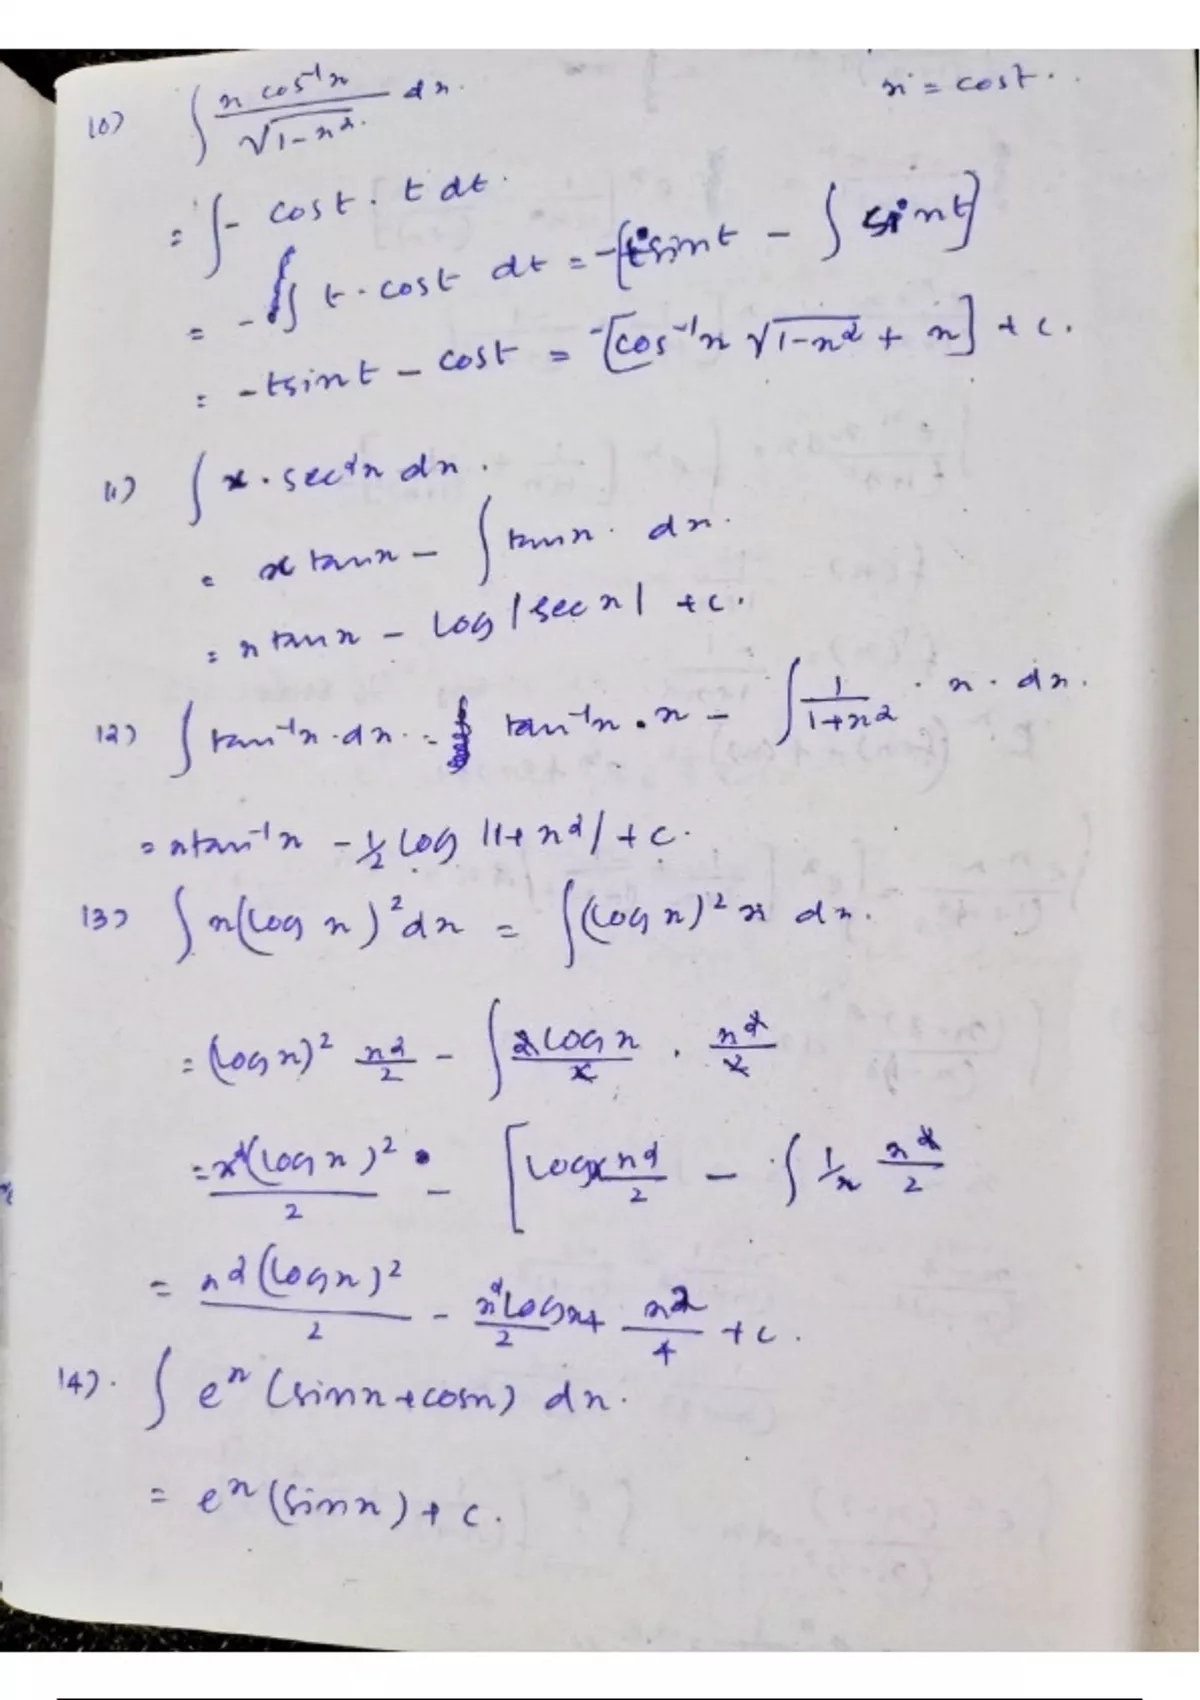 10) ∫ x cos⁻¹x / √(1-x²) dx. x = cost.
= ∫ - cost. t dt.
= - ∫ t. cost dt = -[tsint - ∫ sint]
= -tsint - cost = -[cos⁻¹x √(1-x²) + x] + c.
11) ∫ x. sec²x dx.
= x tanx - ∫ tanx. dx.
= x tanx - log |sec x| + c.
12) ∫ tan⁻¹x. dx. = tan⁻¹x . x - ∫ 1/(1+x²) . x. dx.
= xtan⁻¹x - ½ log |1+x²| + c.
13) ∫ x(log x)² dx = ∫ (log x)² x dx.
= (log x)² x²/2 - ∫ 2logx/x . x²/2
= x²(log x)²/2 - [logx x²/2 - ∫ 1/x x²/2
= x²(logx)²/2 - x²logx/2 + x²/4 + c.
14). ∫ eˣ (sinx+cosx) dx.
= eˣ (sinx) + c.